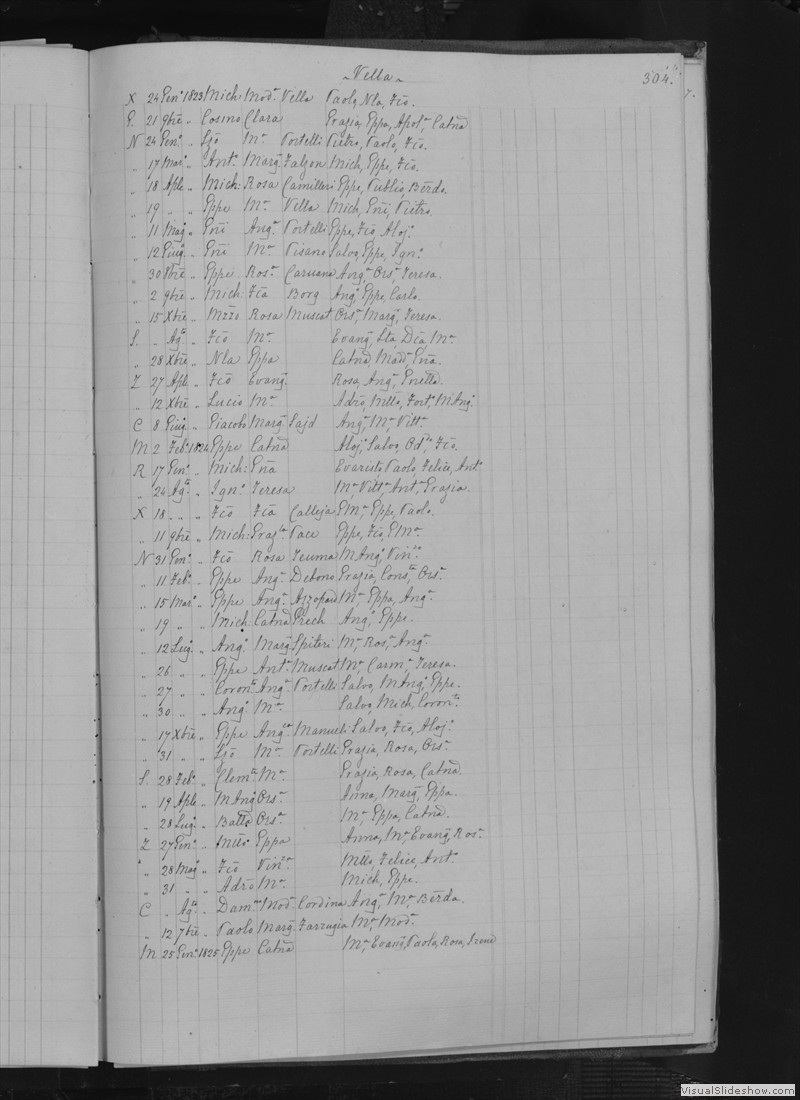 Vella
304.
X 24 Gen.o 1823 Mich Mod.a Vella Paolo, Nla, Fco.
G. 21 9bre " Cosmo Clara Grazia, Eppa, Apol.a, Catna
N 24 Gen.o " Gio M.a Portelli Pietro, Paolo, Fco.
" 17 Mar.o " Ant.o Marg.a Falzon Mich, Eppe, Fco.
" 18 Aple " Mich: Rosa Camilleri Eppe, Publio, Berdo.
" 19 " " Eppe M.a Vella Mich, Gni, Pietro.
" 11 Mag.o " Gni Ang.a Portelli Eppe, Fco, Aloj.o
" 12 Giug.o " Gni M.a Pisano Salvo, Eppe, Ign.o
" 30 8bre " Eppe Ros.a Caruana Ang.a Ors.a Teresa.
" 2 9bre " Mich: Fca Borg Ang.o Eppe, Carlo.
" 15 Xbre " Rosa Muscat Ors.a Marg.a Teresa.
S. " Ag.to " Fco M.a Evang.a Lta, Dca, M.a
" 28 Xbre " Nla Eppa Catna, Mad.a, Gna.
Z 27 Aple " Fco Evang.a Rosa, Ang.a, Gnella.
" 12 Xbre " Lucio M.a Adro, Mllo, Fort.o, M Ang.o
C 8 Giug.o " Giacobo Marg.a Sajd Ang.a M.a Vitt.a
M 2 Feb.o 1824 Eppe Catna Aloj.o Salvo, Fco.
R 17 Gen.o " Mich: Gna Evaristo Paolo, Felice, Ant.o
" 24 Ag.to " Ign.o Teresa M.a Vitt.a Ant.a Grazia.
X 18 " " Fco Fca Calleja G M.a Eppe, Paolo.
" 11 9bre " Mich: Graz.la Pace Eppe, Fco, G M.a
N 31 Gen.o " Fco Rosa Zeuma M Ang.o Vin.zo
" 11 Feb.o " Eppe Ang.a Debono Grazia, Cons.ta Ors.a
" 15 Mar.o " Eppe Ang.a Azzopard M.a Eppa, Ang.a
" 19 " " Mich Catna Grech Ang.o Eppe.
" 12 Lug.o " Ang.o Marg.a Spiteri M.a Ros.a Ang.a
" 26 " " Eppe Ant.a Muscat M.a Carm.a Teresa.
" 27 " " Coron.to Ang.a Portelli Salvo, M Ang.o Eppe.
" 30 " " Ang.o M.a Salvo, Mich, Coron.to
" 17 Xbre " Eppe Ang.ca Manueli Salvo, Fco, Aloj.o
" 31 " " Gio M.a Portelli Grazia, Rosa, Ors.a
S. 28 Feb.o " Clem.te M.a Grazia, Rosa, Catna.
" 19 Aple " M Ang.o Ors.a Anna, Marg.a Eppa.
" 28 Lug.o " Batta Ors.a M.a Eppa, Catna.
Z 27 Gen.o " Mllo Eppa Anna, M.a Evang.a Ros.a
" 28 Mag.o " Fco Vin.za Mllo, Felice, Ant.o
" 31 " " Adro M.a Mich, Eppe.
C " Ag.to " Dam.no Mod.a Cordina Ang.a M.a Berda.
" 12 7bre " Paolo Marg.a Farrugia M.a Mod.a
M 25 Gen.o 1825 Eppe Catna M.a Evang.a Paola, Rosa, Irene
VisualSlideshow.com